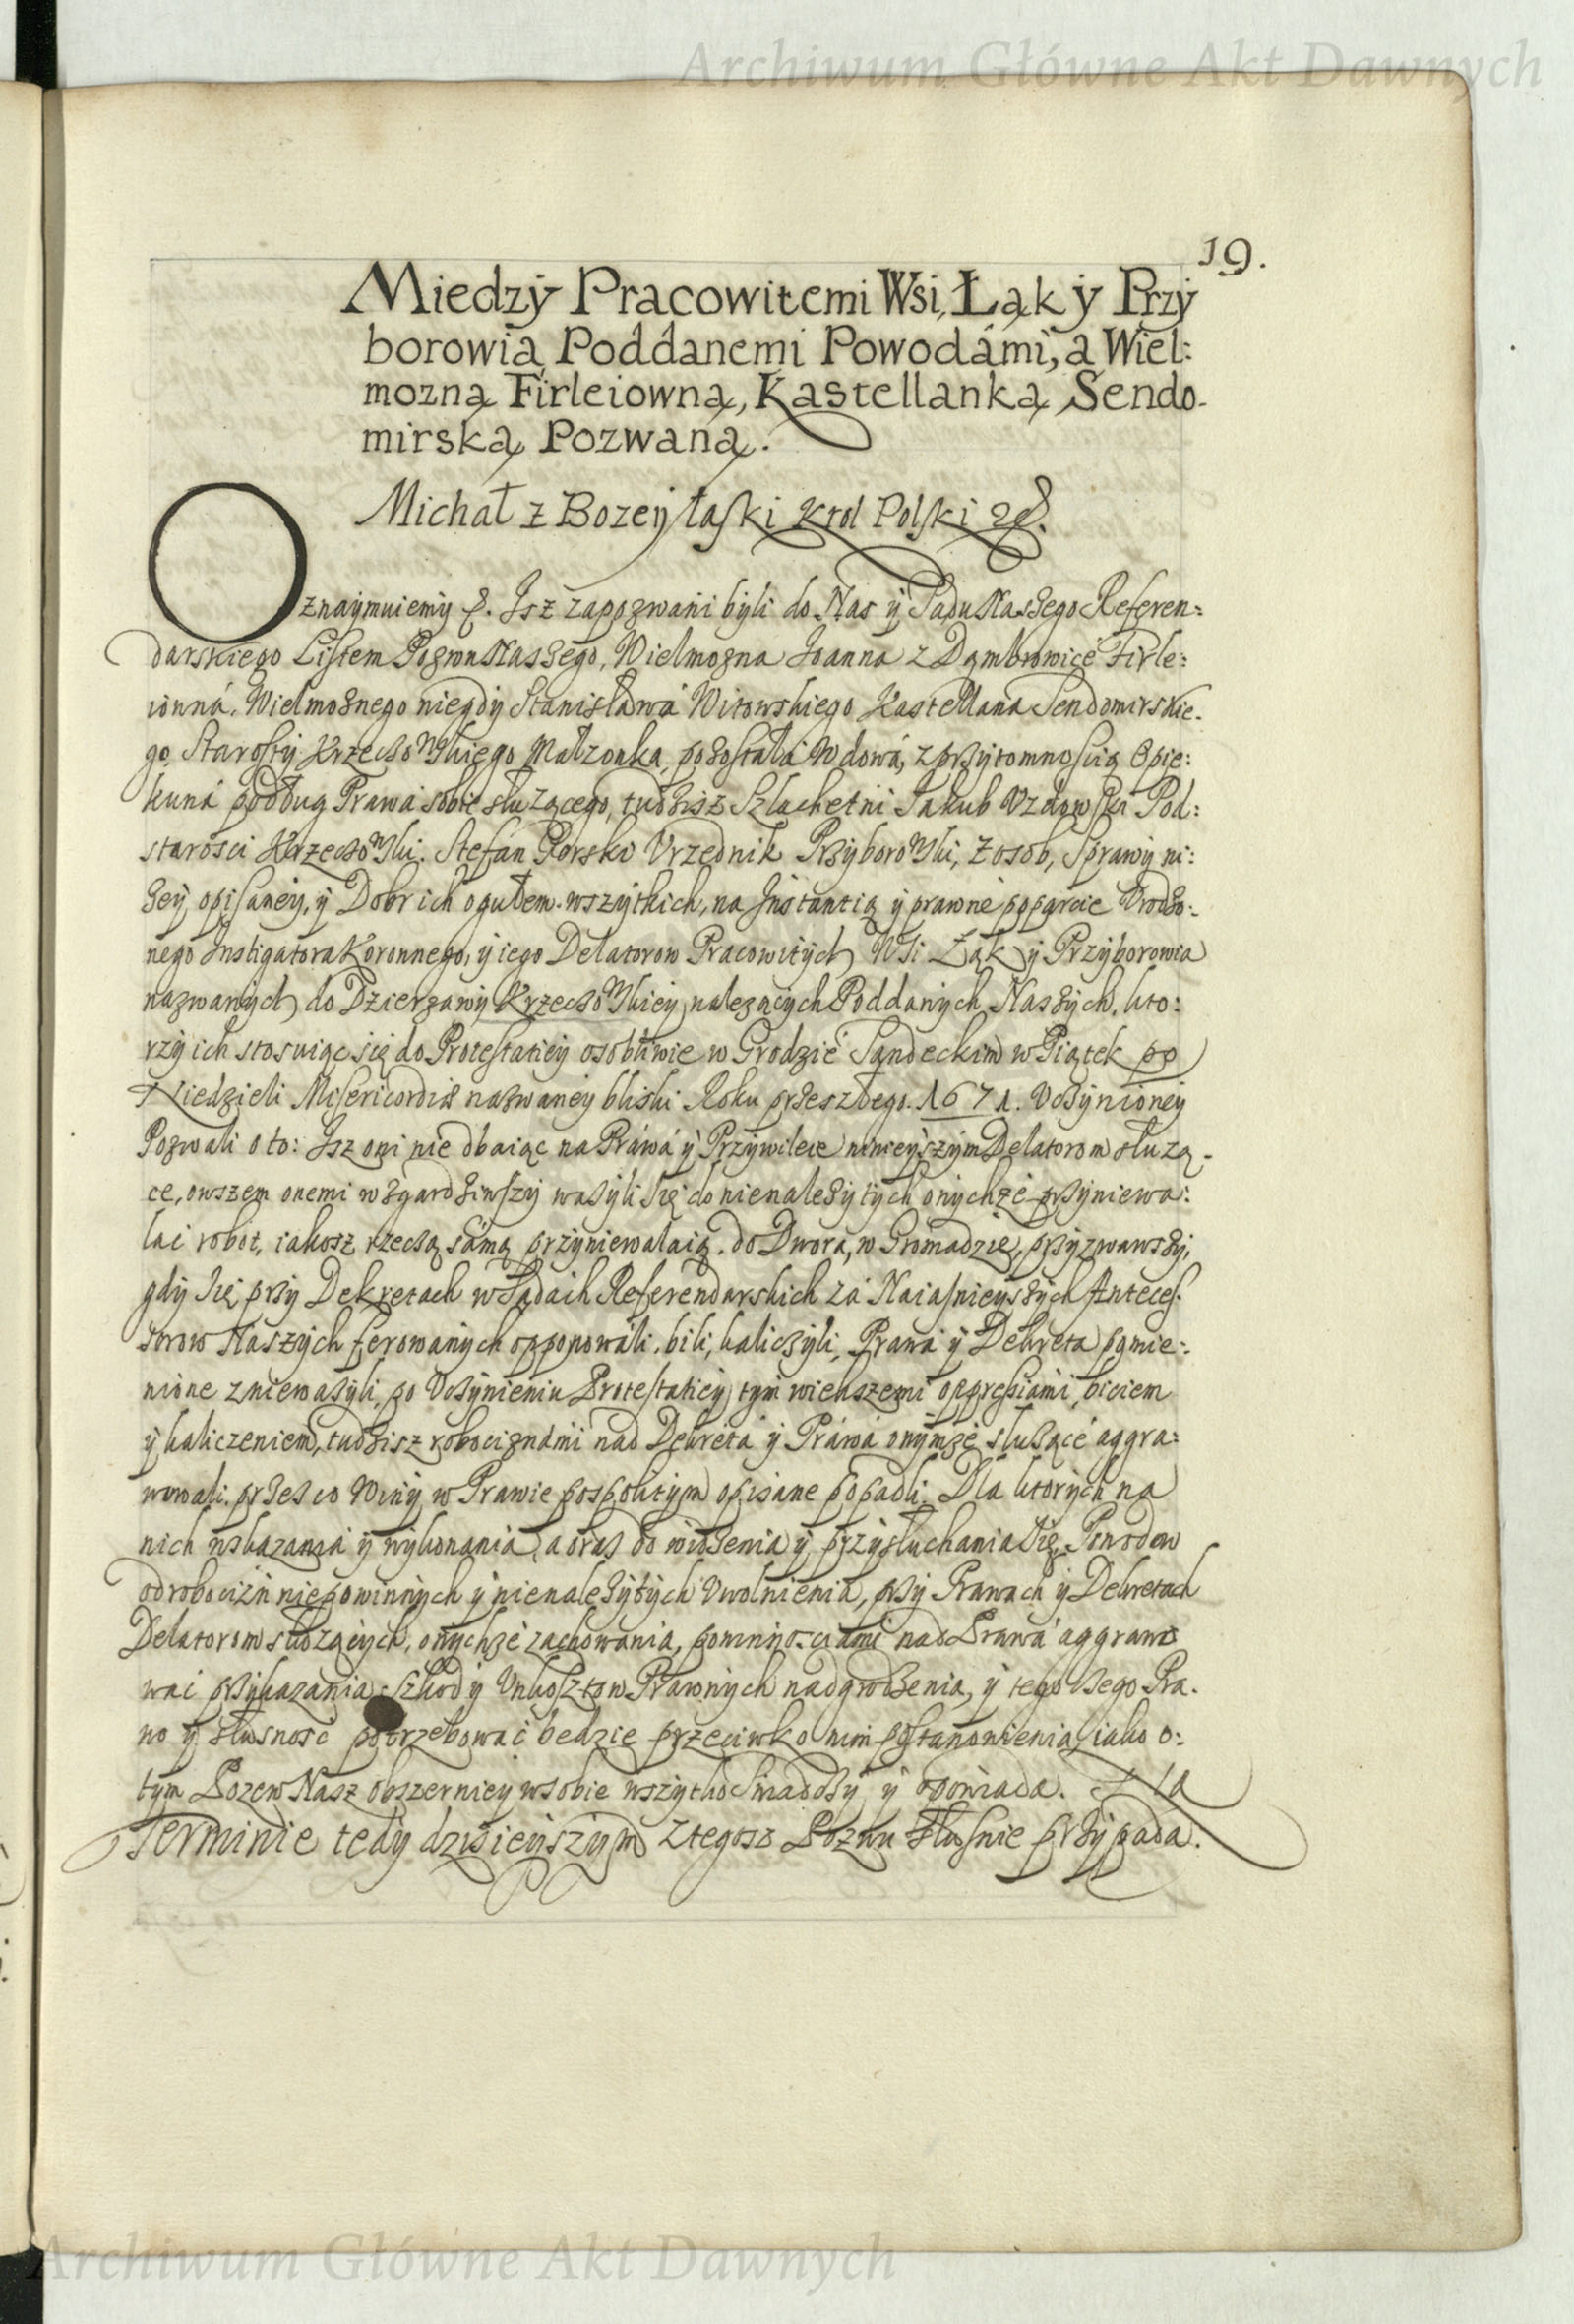 Archiwum Główne Akt Dawnych
19.
Miedzÿ Pracowitemi Wsi, Łąk ÿ Przÿ
borowia Poddanemi Powodámi, a Wiel:
mozną Firleiowną, Kastellanką Sendo-
mirską Pozwaną.
Michał z Bozeÿ łaski Krol Polski
Oznaÿmuiemÿ &. Isz zapozwani bÿli do Nas ÿ Sądu Naszego Referen:
darskiego Listem Pozwu Naszego, Wielmozna Joanna z Dąmbrowice Firle:
iowná, Wielmoznego niegdÿ Stanisławá Witowskiego Kastellana Sendomirskie-
go, Starostÿ Krzeczowskiego Małzonka, pozostała Wdowá, z przÿtomnoscią Opie:
kuná podług Prawá sobie słuzącego, tudzisz Szlachetni Jakub Vzdowski Pod:
starosci Krzeczowski. Stefan Vrzednik Przÿborowski, z osob, Sprawÿ ni:
zeÿ opisaneÿ, ÿ Dobr ich ogułem wszÿtkich, na Instantią ÿ prawne poparcie Vrodzo:
nego Instigatora Koronnego, ÿ iego Delatorow Pracowitÿch Wsi Łąk ÿ Przÿborowia
nazwanÿch do Dzierzawÿ Krzeczowskieÿ nalezącÿch Poddanÿch Naszÿch, kto:
rzÿ ich stosuiąc się do Protestatieÿ osobliwie w Grodzie Sandeckim w Piątek po
Niedzieli Misericordiæ nazwaneÿ bliski Roku przeszłego. 1671. Vczÿnioneÿ
Pozwali o to: Isz oni nie dbaiąc na Práwá ÿ Przÿwileie ninieÿszÿm Delatorom słuzą-
ce, owszem onemi wzgardziwszÿ wazÿli się do nienalezÿtÿch onÿchże przÿniewa:
lac robot, iakosz rzeczą sámą przÿniewalaią, do Dwora, w Gromadzie, przÿzwawszÿ,
gdÿ się przÿ Dekretach w Sądach Referendarskich zá Naiasnieÿszÿch Anteces
sorow Naszÿch ferowanÿch opponowáli, bili, kaliczÿli, Prawá ÿ Dekreta pomie:
nione zniewazÿli, po Vczÿnieniu Protestatieÿ tÿm wiekszemi oppresiami, biciem
ÿ kaliczeniem, tudzisz robociznámi nad Dekretá ÿ Práwá onÿmże słuzące aggra:
wowali. przez co Winÿ w Prawie pospolitÿm opisane popadli. Dla ktorÿch na
nich wskazania ÿ wÿkonania, a oraz do widzenia ÿ przÿsłuchania się, Powodow
od robocizn niepowinnÿch ÿ nienalezÿtÿch Vwolnienia, przÿ Prawach ÿ Dekretach
Delatorom słuzącÿch, onÿchże zachowania, powinnosciami nad Prawá aggrawo
wac przÿkazania, szkodÿ Vnkosztow Prawnÿch nadgrodzenia, ÿ tego czego Pra-
wo ÿ słusnosc potrzebowac bedzie przeciwko nim postanowienia, iako o:
tÿm Pozew Nasz obszernieÿ w sobie wszÿtko swiadczÿ ÿ opowiada. Na
Terminie tedÿ dzisieÿszÿm z tegosz Pozwu słusnie przÿpada.
Archiwum Główne Akt Dawnych